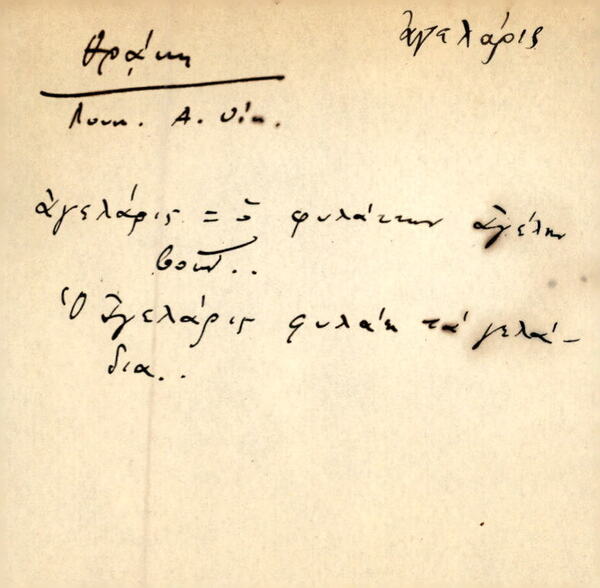 ἀγελάρις
Θράκη
ἀγελάρις = ὁ φυλάττων ἀγέλην
βοῶν..
Ὁ ἀγελάρις φυλάει τά γελά-
δια..